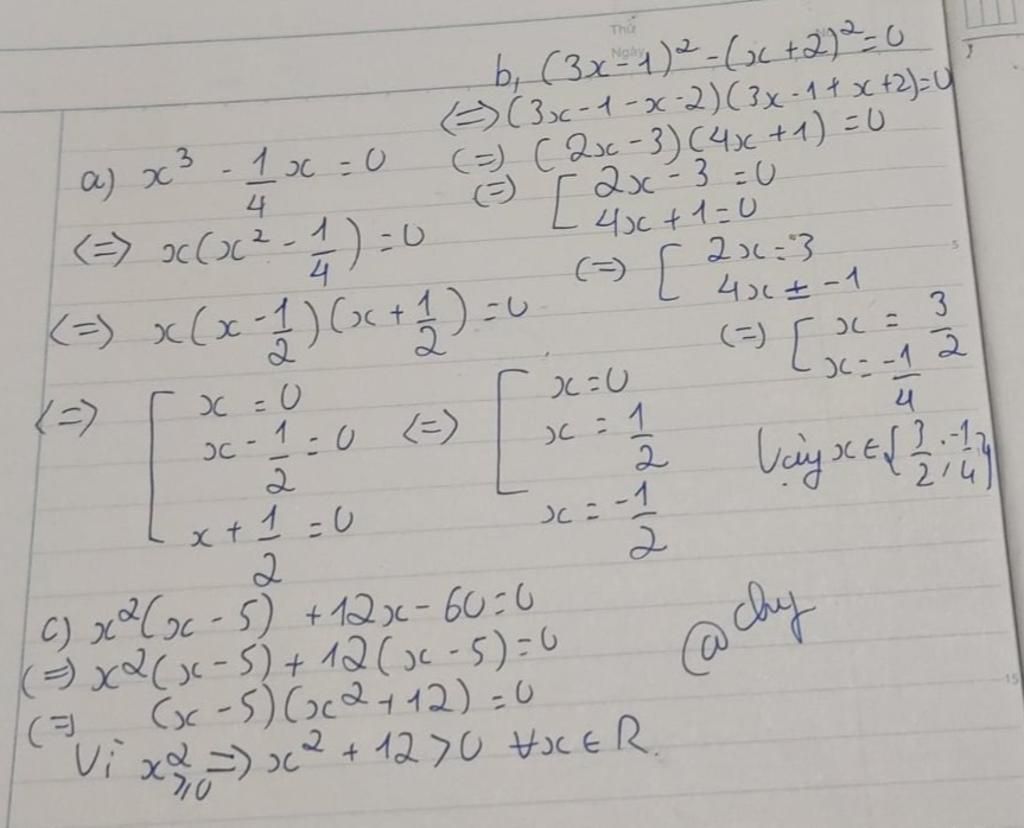 Thứ
Ngày
b, (3x-1)² - (x+2)² = 0
<=> (3x-1-x-2)(3x-1+x+2)=0
<=> (2x-3)(4x+1) = 0
<=> [ 2x-3 = 0
4x+1=0
<=> [ 2x=3
4x = -1
<=> [ x = 3/2
x = -1/4
Vậy x ∈ {3/2; -1/4}
a) x³ - 1/4 x = 0
<=> x(x² - 1/4) = 0
<=> x(x - 1/2)(x + 1/2) = 0
<=> [ x = 0
x - 1/2 = 0
x + 1/2 = 0
<=> [ x=0
x = 1/2
x = -1/2
c) x²(x-5) + 12x - 60 = 0
<=> x²(x-5) + 12(x-5) = 0
<=> (x-5)(x²+12) = 0
Vì x² ≥ 0 => x² + 12 > 0 ∀x ∈ R.
@chy
5
15